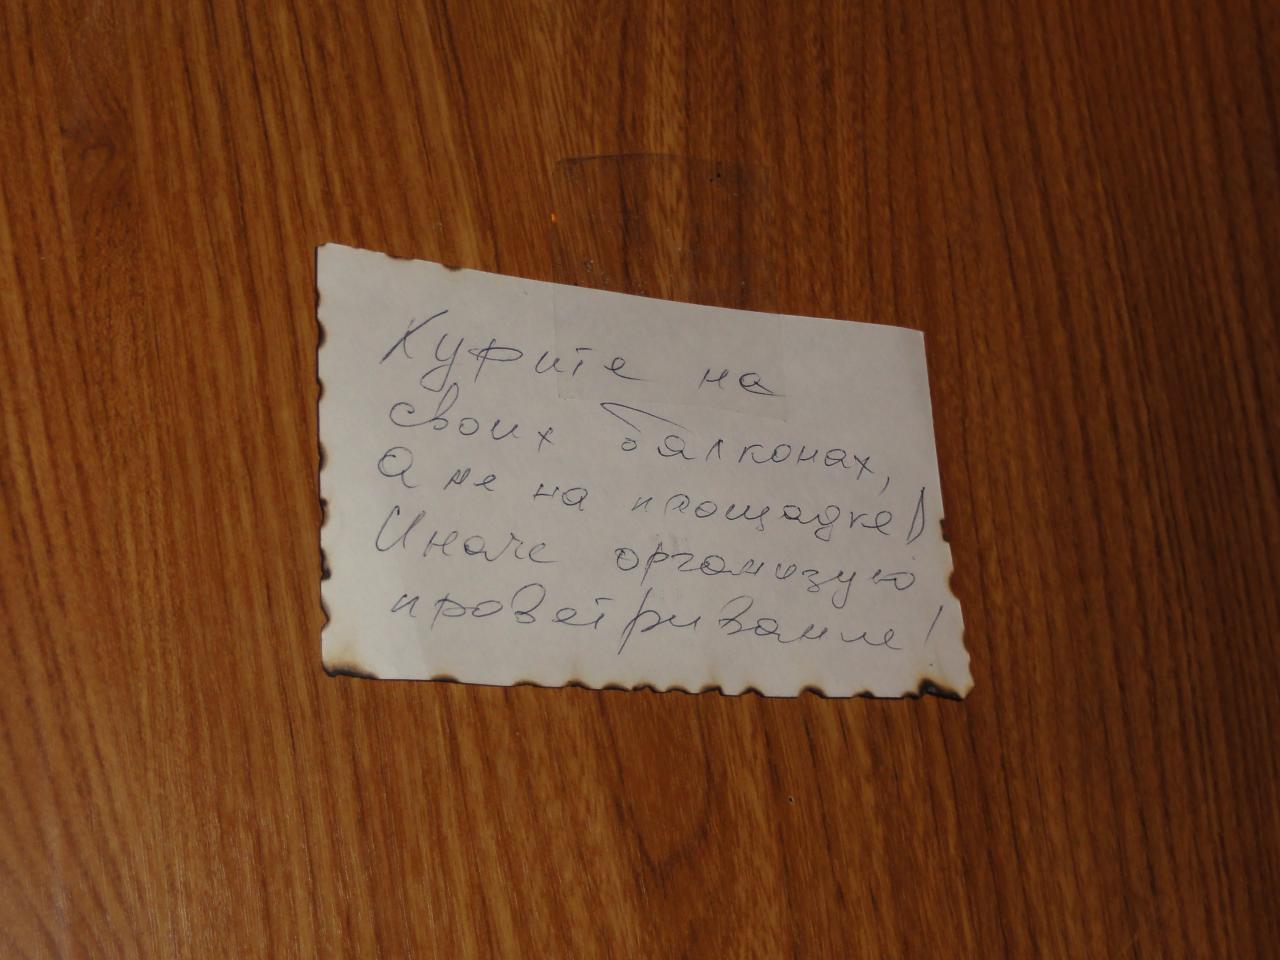 Курите на
своих балконах,
а не на площадке!
Иначе организую
проветривание!